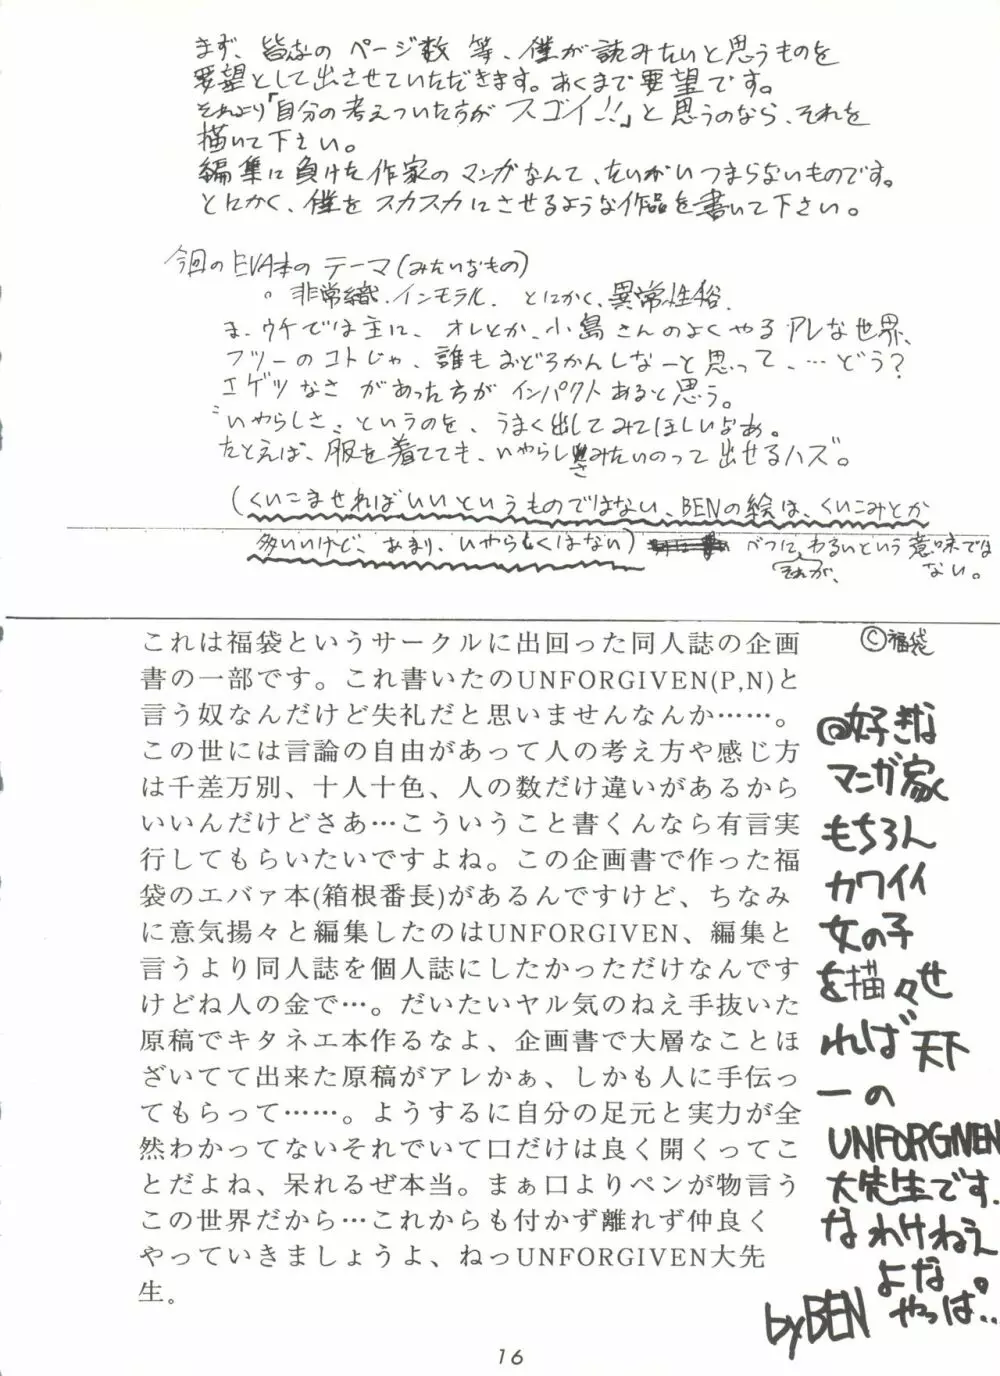 まず、皆なの ページ数 等、僕が読みたいと思うものを
要望として出させていただきます。あくまで要望です。
それより「自分の考えついた方が スゴイ!!」と思うのなら、それを
描いて下さい。
編集に負けた作家のマンガなんて、たいがいつまらないものです。
とにかく、僕を スカスカにさせるような作品を書いて下さい。
今回のEVA本の テーマ(みたいなもの)
。非常織.インモラル. とにかく、異常性俗.
ま、ウチでは主に、オレとか、小島さんのよくやる アレな世界、
フツーのコトじゃ、誰もおどろかんしなーと思って、…どう?
エゲツなさ があった方が インパクトあると思う。
"いやらしさ"というのを、うまく出してみてほしいなあ。
たとえば、服を着てても、いやらしさみたいのって出せるハズ。
(くいこませればいいというものではない、BENの絵は、くいこみとか
多いけど、あまり、いやらしくはない) べつに、それが、わるいという意味では
ない。
これは福袋というサークルに出回った同人誌の企画
書の一部です。これ書いたのUNFORGIVEN(P,N)と
言う奴なんだけど失礼だと思いませんなんか……。
この世には言論の自由があって人の考え方や感じ方
は千差万別、十人十色、人の数だけ違いがあるから
いいんだけどさあ…こういうこと書くんなら有言実
行してもらいたいですよね。この企画書で作った福
袋のエバァ本(箱根番長)があるんですけど、ちなみ
に意気揚々と編集したのはUNFORGIVEN、編集と
言うより同人誌を個人誌にしたかっただけなんです
けどね人の金で…。だいたいヤル気のねえ手抜いた
原稿でキタネエ本作るなよ、企画書で大層なことほ
ざいてて出来た原稿がアレかぁ、しかも人に手伝っ
てもらって……。ようするに自分の足元と実力が全
然わかってないそれでいて口だけは良く開くってこ
とだよね、呆れるぜ本当。まぁ口よりペンが物言う
この世界だから…これからも付かず離れず仲良く
やっていきましょうよ、ねっUNFORGIVEN大先
生。
©福袋
@好きな
マンガ家
もちろん
カワイイ
女の子
を描々せ
れば天下
一の
UNFORGIVEN
大先生です.
なわけねえ
よな。
やっぱ..
by BEN
16